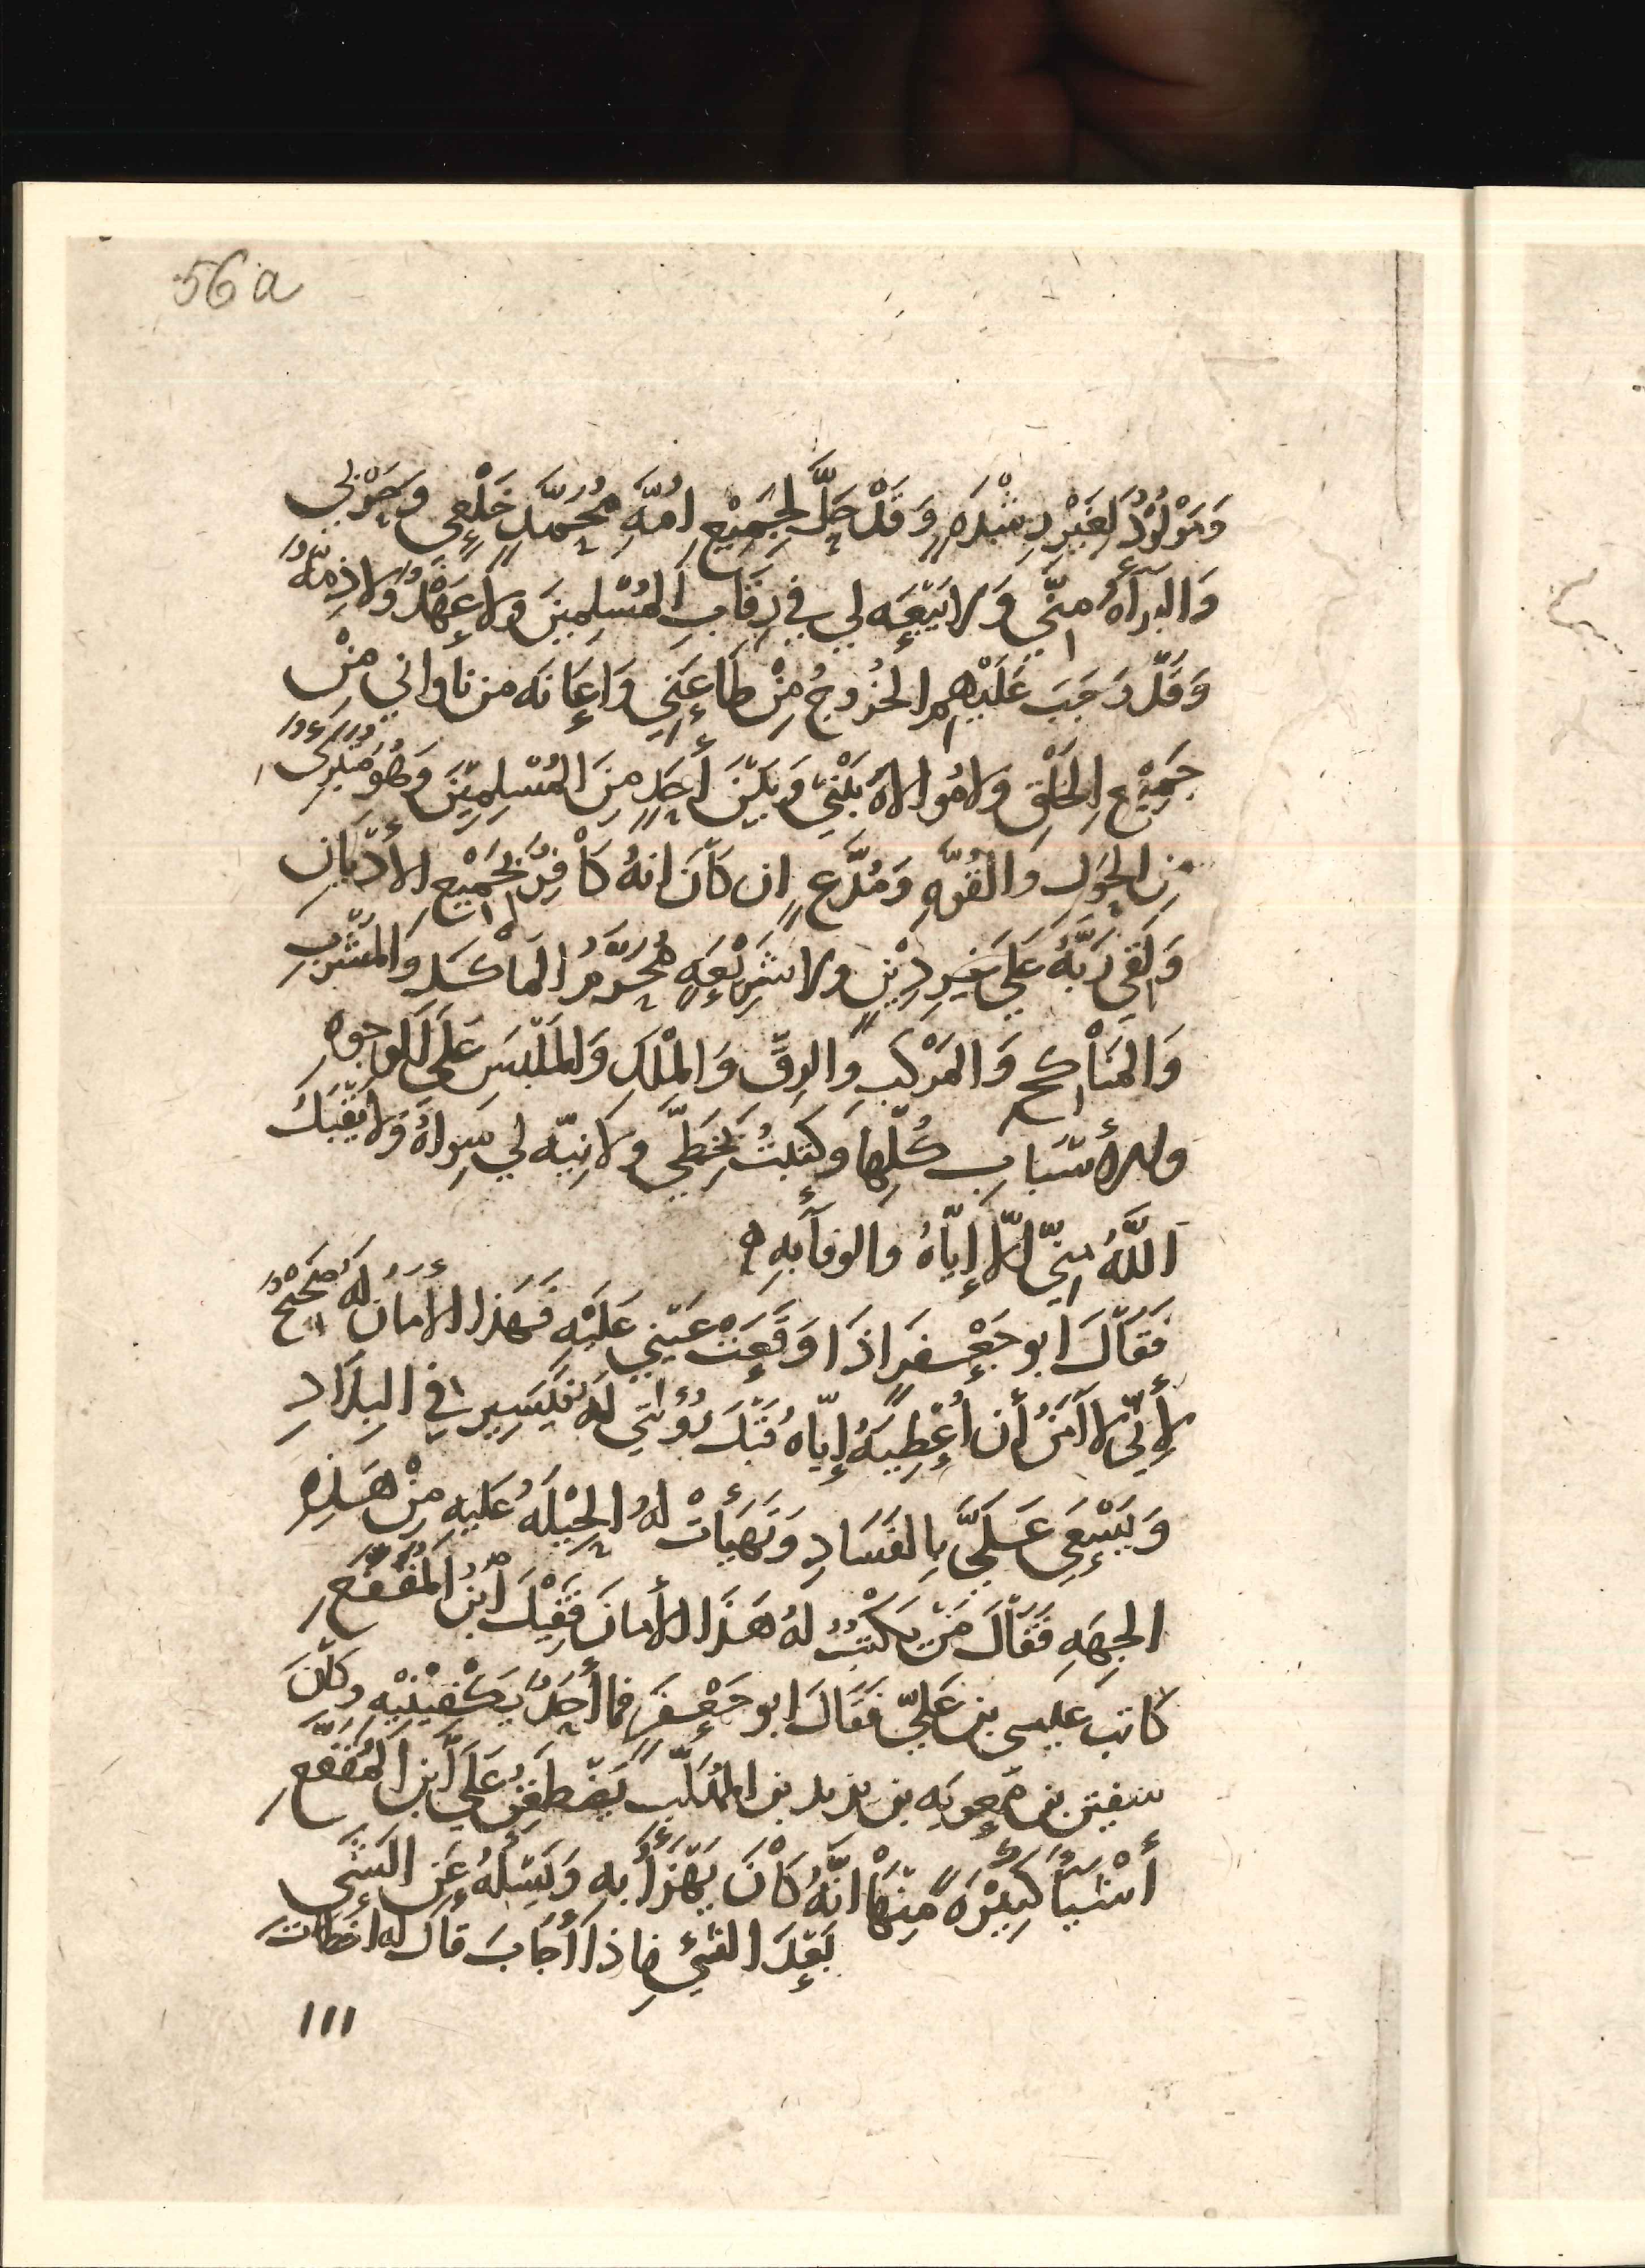 56a
وَمَوْلُوْدٌ لِغَيْرِ رِشْدَهٍ وَقَدْ حَلَّ لِجَمِيْعِ اُمَّهِ مُحَمَّدٍ خَلْعِي وَحَرْبي
وَالبَرآَهُ مِنّي وَلا بَيْعَه لي في رِقَابِ المُسْلِمِينَ وَلا عَهْدٌ وَلا ذِمَّهٌ
وَقَدْ وَجَبَ عَلَيْهِم الخُرُوجُ مِنْ طَاعَتِي وَاِعَانَه من نَاوَاني مِنْ
جَمِيْعِ الخَلْقِ وَلا مُوالاهَ بَيْنِي وَبَيْنَ أحَدٍ مِنَ المُسْلِمِيْنَ وَهُوَ مُتَبَرِّئٌ
مِن الحَوْلِ وَالقُوَّهِ وَمُدَّعٍ اِن كَانَ انهُ كَافِرٌ بِجَمِيْعِ الأَدْيَانِ
وَلَقِيَ رَبَّهُ عَلَي غَيرِ دِيْنٍ ولا شَرِيْعَهٍ مُحَرَّمُ المَأكَلِ وَالمَشْرَبِ
وَالمَنَاكحِ وَالمَرْكَبِ وَالرِقِّ وَالمِلْكِ وَالمَلْبَسِ عَلَي الوجوه
والأسْبَابِ كُلّهَا وَكَتَبْتُ بِخَطّي ولا نِيّه لي سِواهُ وَلا يَقْبَلُ
اَللَّهُ مِنّي اِلاّ إيّاهُ والوفآَ بِهِ ه
فَقَالَ ابو جَعْفَرٍ اذَا وَقَعَتْ عَيْنِي عَلَيْهِ فَهَذا الأمَانُ لَهُ صَحِيْحٌ
لإنّي لا آمَنُ أن اُعْطِيَهُ إيّاهُ قَبْلَ رُؤيَتِي لَهُ فَيَسِير في البِلادِ
وَيَسْعَى عَلَيَّ بِالفَسَادِ وَتَهَيَأتْ لهُ الحِيْلَهُ عَلَيهِ مِنْ هَذِهِ
الجِهَهِ فَقَالَ مَنْ يَكْتُبُ لهُ هَذَا الأمَانَ فَقِيْلَ ابْنُ المُقَفَّعِ
كَاتبُ عِيسى بن عَليّ فَقَالَ ابو جَعْفَرٍ فما أحَدٌ يَكْفِيْنِيْهِ وكَانَ
سفين بن مَعوِيَه بن يزيد بن المُهَلَّبِ يَضْطَغِنُ عَلَي ابنِ المُقَفَّعِ
أشْيَآَ كَثِيْرَهً مِنْهَا انَّهُ كَانَ يَهْزَأُ بِهِ وَيَسْئلُهُ عَنِ الشَي
بَعْدَ الشيِ فاذا أجَابَ قالَ لَه اخطَات
١١١